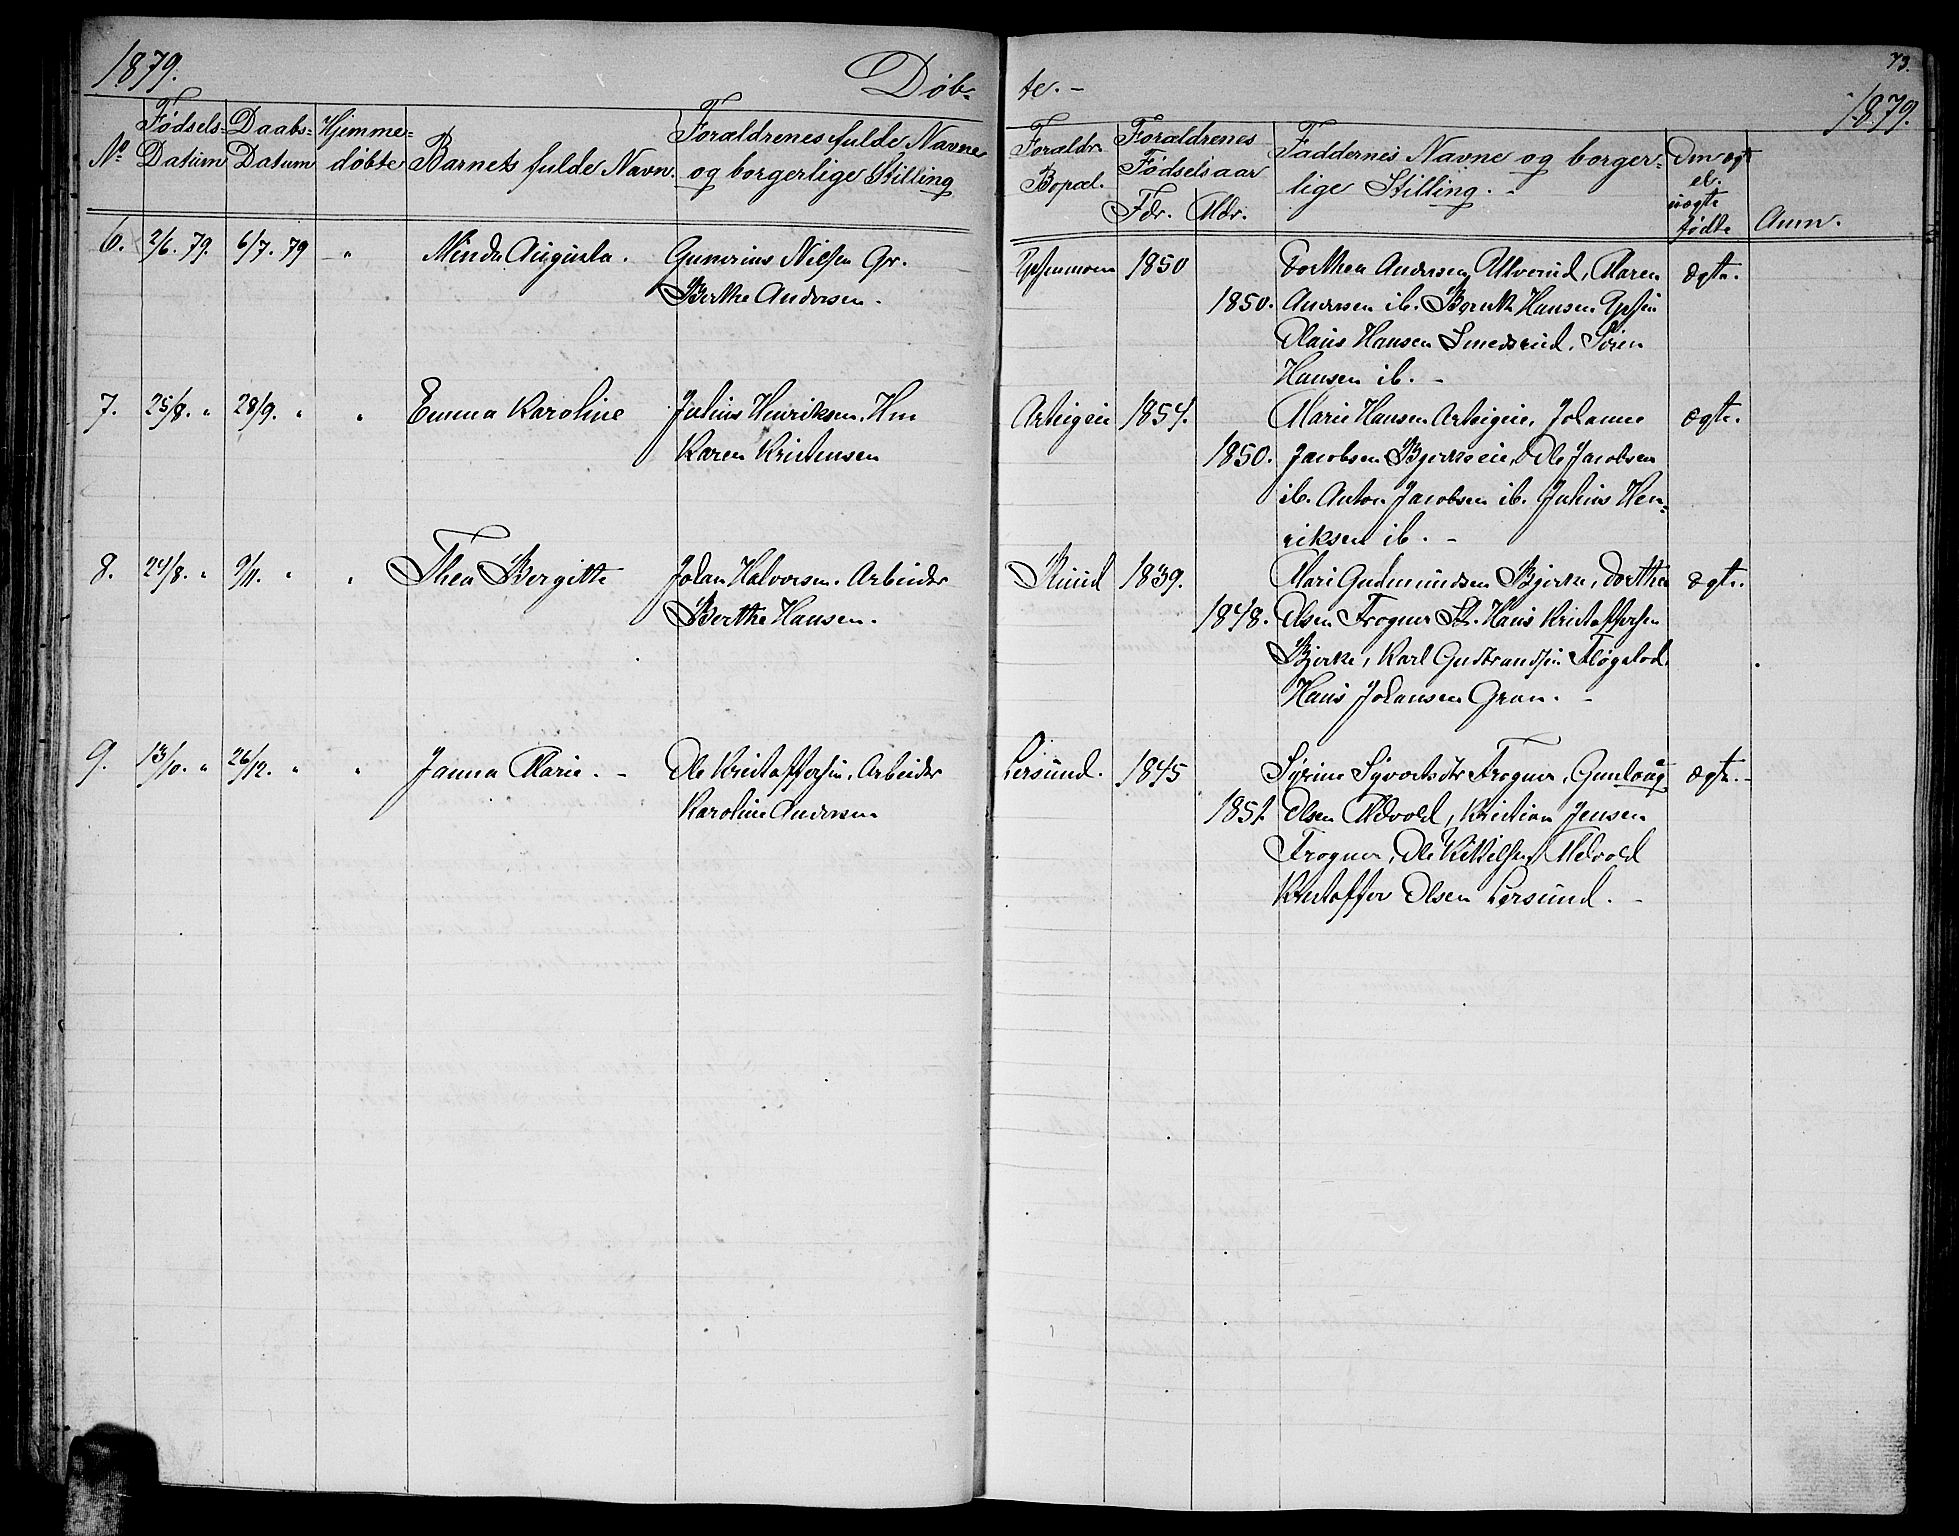 1879.
Døb-
te. -
73.
1879.
No
Fødsels-
Datum
Daabs-
Datum
Hjemme-
døbte
Barnets fulde Navn.
Forældrenes fulde Navne
og borgerlige Stilling
Forældr.
Bopæl.
Forældrenes
Fødselsaar
Fdr. Mdr.
Faddernes Navne og borger-
lige Stilling. -
Om ægt
el.
uægte
fødte
Anm.
6. 2/6. 79. 6/7. 79 - " Minda Augusta. Gunerius Nilsen Gr. 1850 Dorthea Andersen Ulverud, Maren ægte.
Berthe Andersen. 1850. Andersen ib. Bernt Hansen
Olaus Hansen Smedsrud. Søren
Hansen ib. -
7. 25/8. " 28/9. " " Emma Karoline Julius Henriksen. Hm Arteigeie 1854. Marie Hansen Arteigeie, Johanne ægte.
Karen Kristensen 1850. Jacobsen Bjerkeeie, Ole Jacobsen
ib. Anton Jacobsen ib. Julius Hen-
riksen ib. -
8. 24/8. " 9/11. " " Thea Bergitte Johan Halvorsen. Arbeider Ruud 1839. Mari Gudmundsen Bjerke, Dorthea ægte.
Berthe Hansen. 1848. Olsen Frogner St. Hans Kristoffersen
Bjerke, Karl Gulbrandsen Fløgstad.
Hans Johansen Gran. -
9. 13/10. " 26/12. " " Janna Marie. - Ole Kristoffersen. Arbeider Lersund. 1845 Syrine Syvertsdtr Frogner, Gunlaug ægte. -
Karoline Andersen 1851. Olsen Melvold, Kristian Jensen
Frogner, Ole Kittilsen Melvold
Kristoffer Olsen Lersund. -